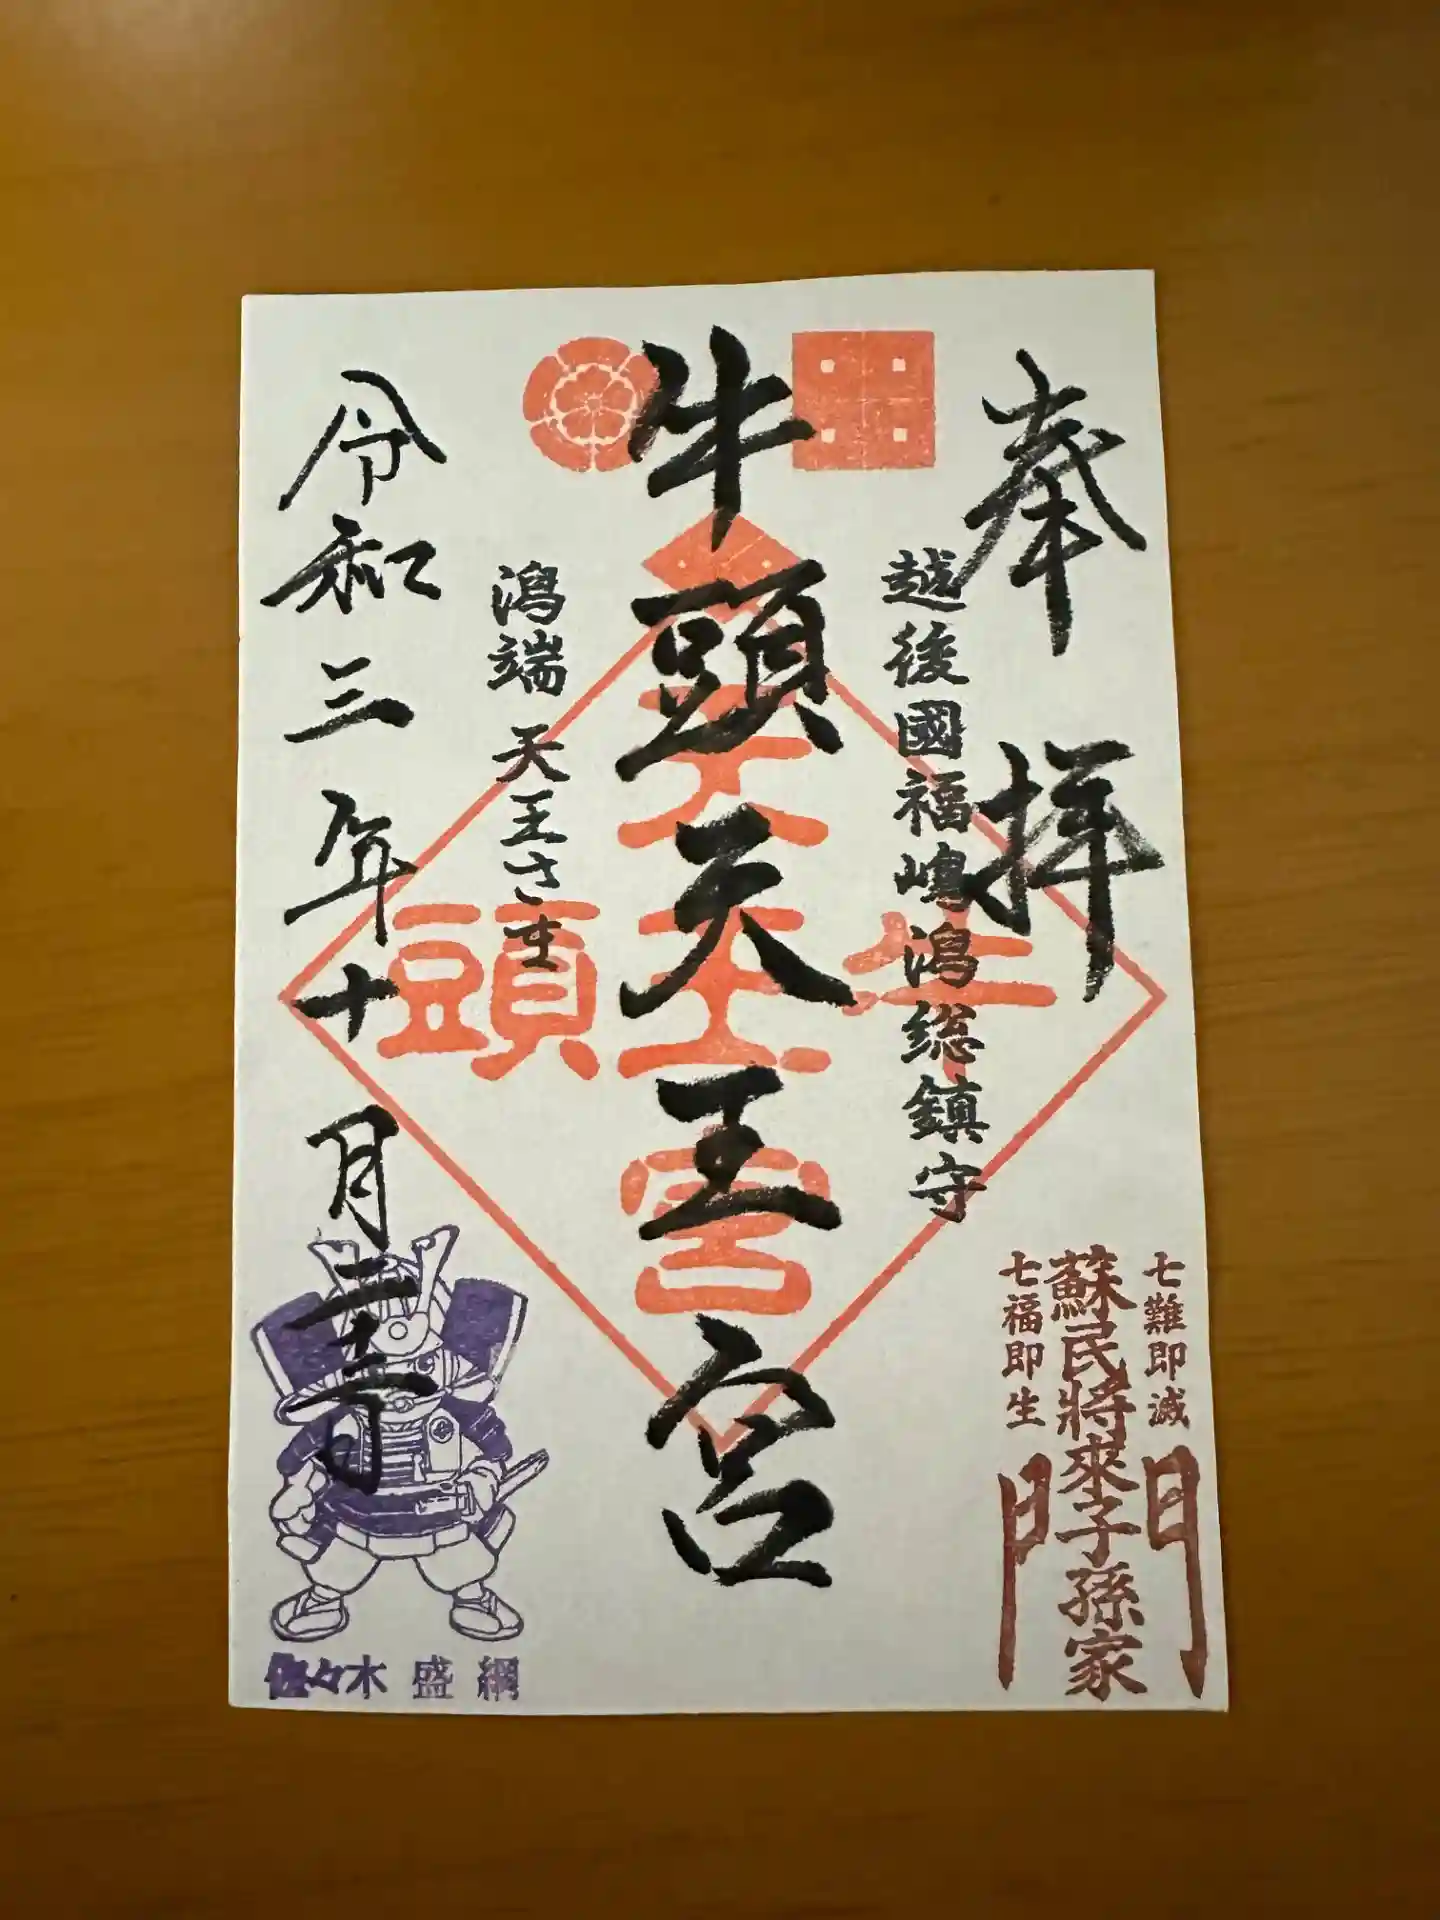 奉拝
越後國福嶋潟総鎮守
牛頭天王宮
潟端 天王さま
令和三年十月二十三日
牛
頭
天王宮
七難即滅
蘇民將來子孫家
門
七福即生
佐々木盛綱